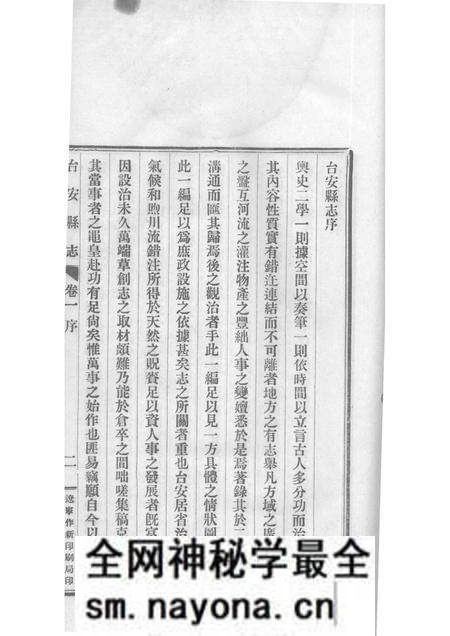 台安縣志序
輿史二學一則據空間以奏筆一則依時間以立言古人多分功而治
其內容性質實有錯注連結而不可離者地方之有志舉凡方域之廣
之盤互河流之灌注物產之豐絀人事之變嬗悉於是焉著錄其於二
溝通而匯其歸焉後之觀治者手此一編足以見一方具體之情狀圖
此一編足以為庶政設施之依據甚矣志之所關者重也台安居省治
氣候和煦川流錯注所得於天然之貺賚足以資人事之發展者既富
因設治未久萬端草創志之取材頗難乃能於倉卒之間咄嗟集稿克
其當事者之黽皇赴功有足尚矣惟萬事之始作也匪易竊願自今以
台安縣志 卷一 序 二 遼寧作新印刷局印
全网神秘学最全
sm.nayona.cn